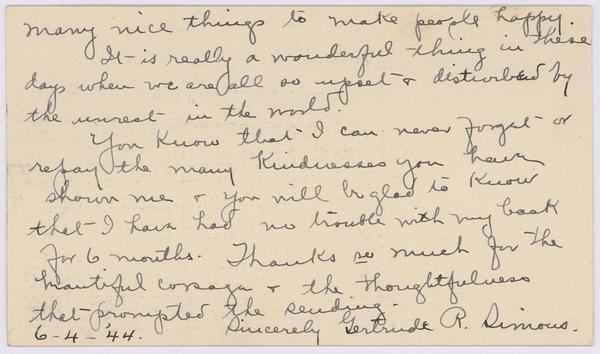 many nice things to make people happy.
It is really a wonderful thing in these
days when we are all so upset & disturbed by
the unrest in the world.
You know that I can never forget or
repay the many kindnesses you have
shown me & you will be glad to know
that I have had no trouble with my back
for 6 months. Thanks so much for the
beautiful corsage & the thoughtfulness
that prompted the sending.
6-4-'44. Sincerely Gertrude R. Simons.